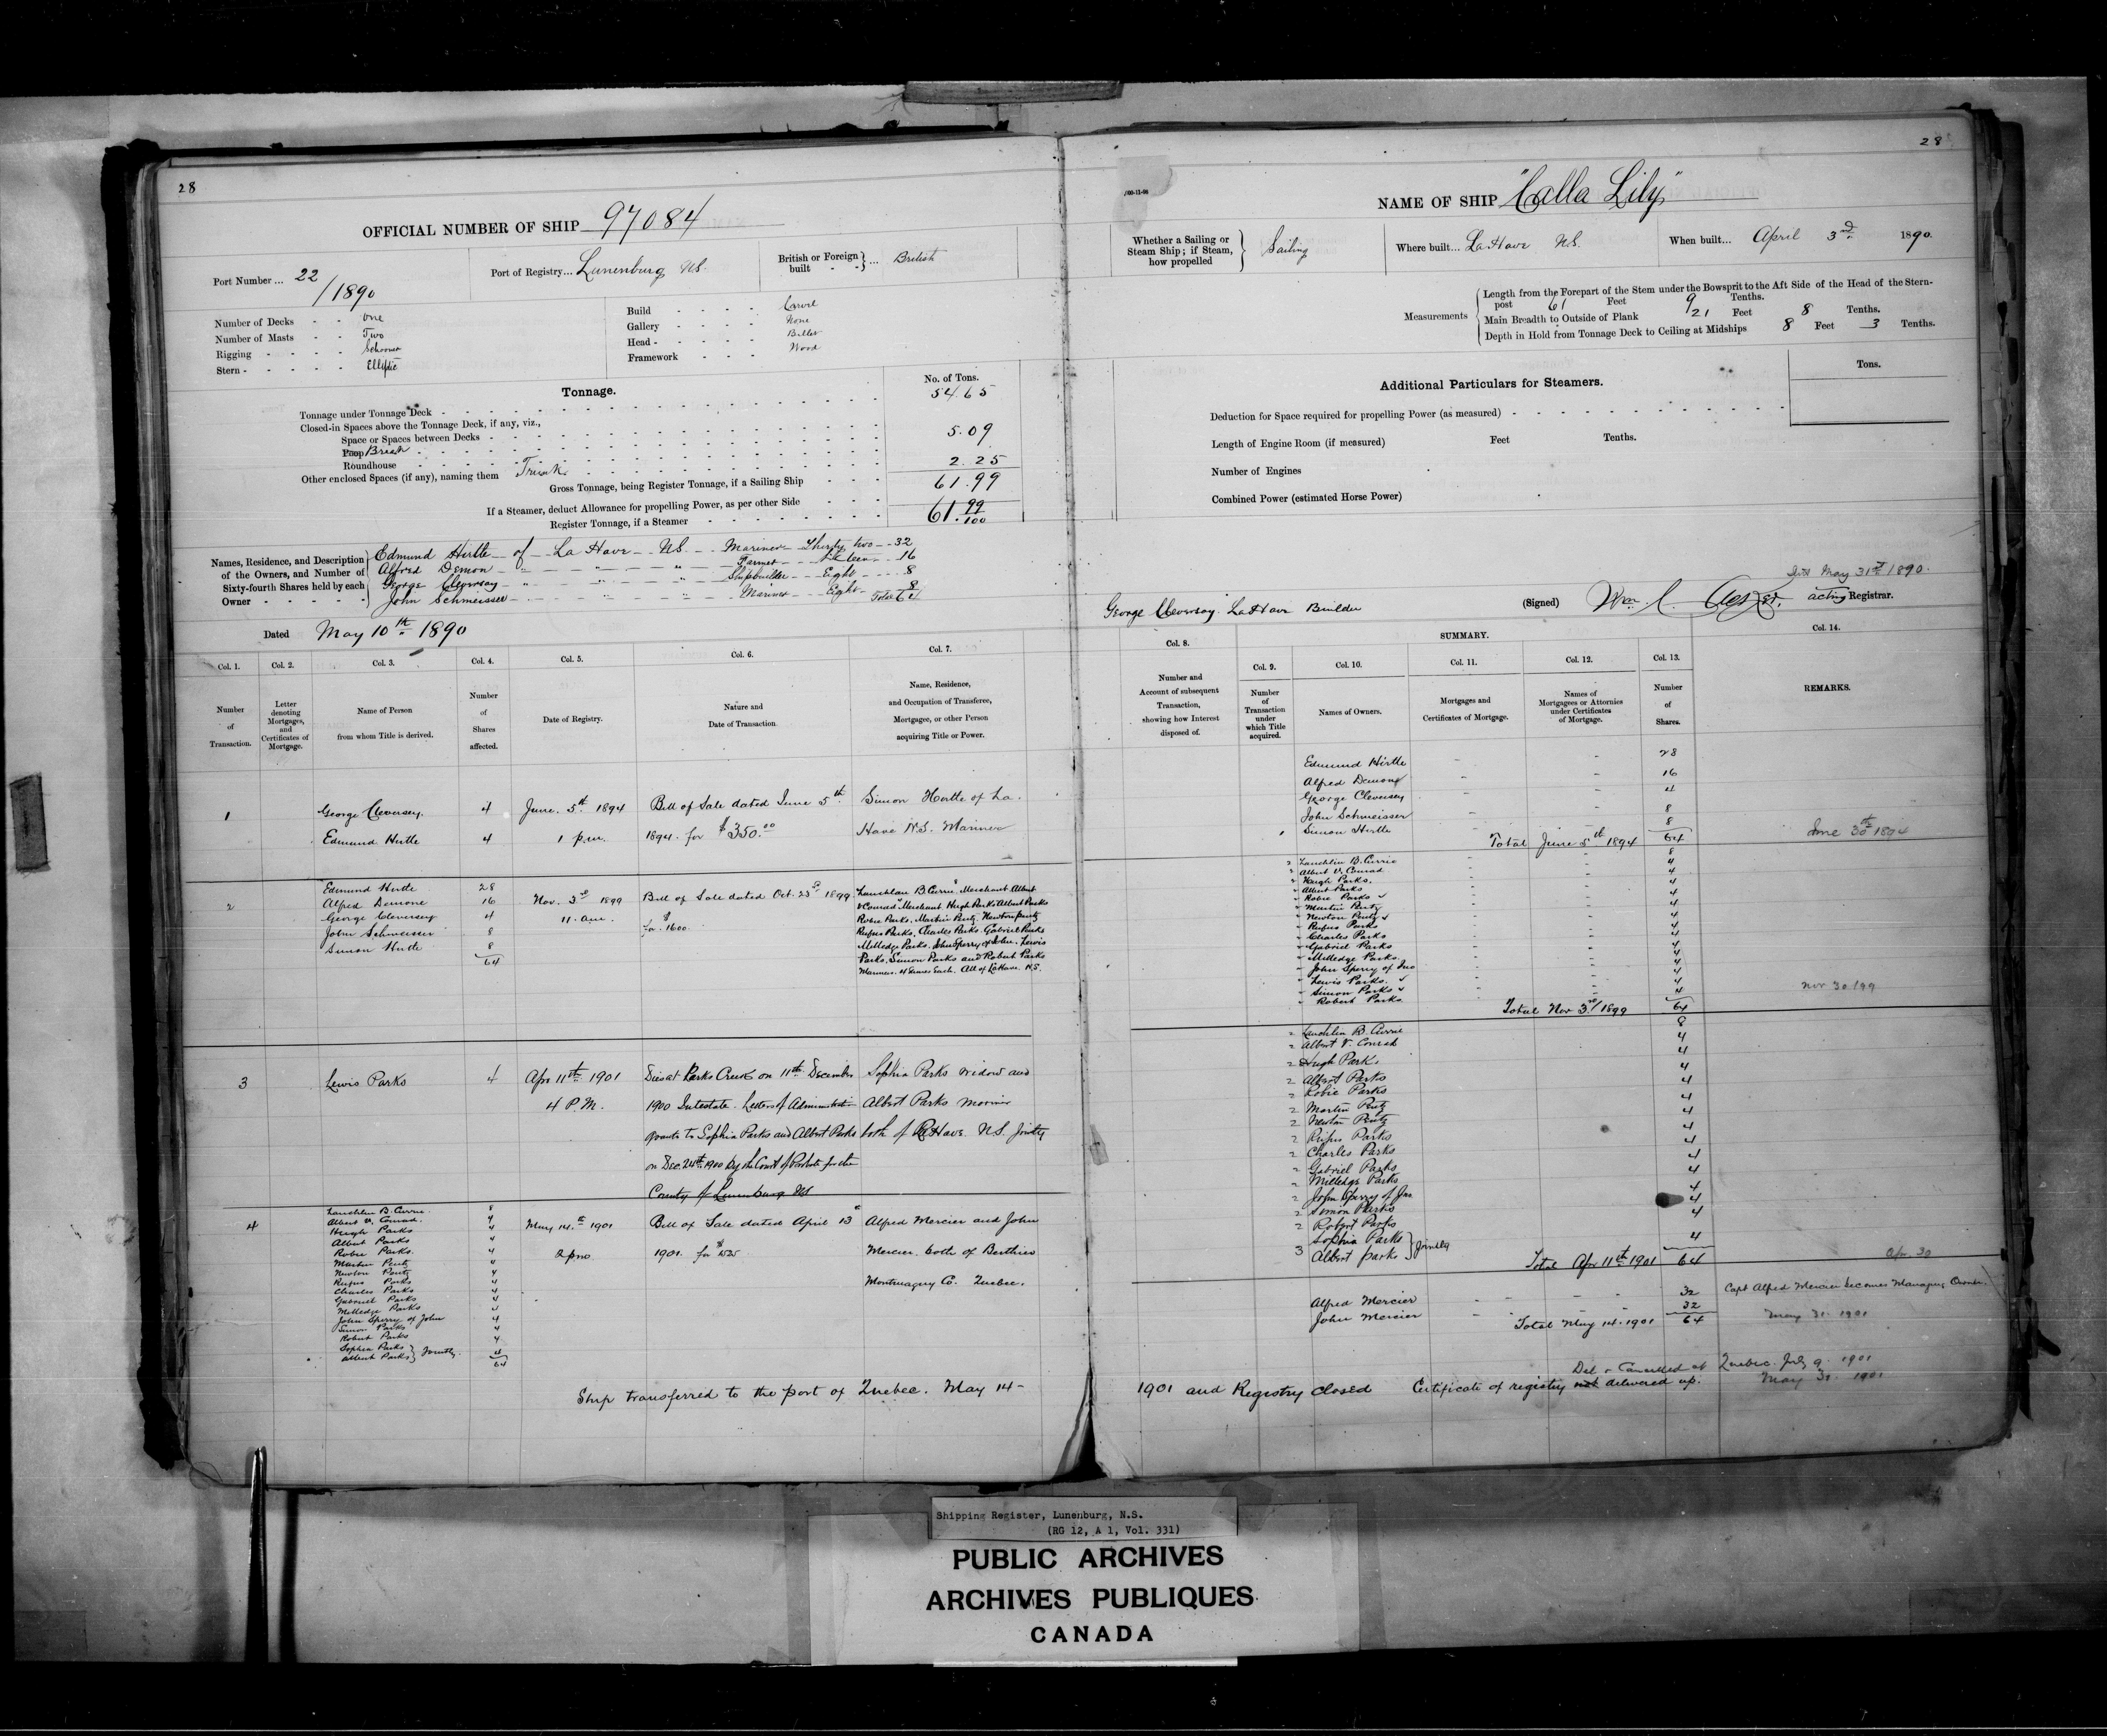 28
OFFICIAL NUMBER OF SHIP 97084
Port Number ... 22/1890
Port of Registry... Lunenburg NS.
British or Foreign built ... British
Number of Decks - - One
Number of Masts - - Two
Rigging - - - - Schooner
Stern - - - - - Elliptic
Build - - - - Carvel
Gallery - - - - None
Head - - - - - Billet
Framework - - - Wood
Tonnage.
No. of Tons.
Tonnage under Tonnage Deck 54.65
Closed-in Spaces above the Tonnage Deck, if any, viz.,
Space or Spaces between Decks
Poop Break 5.09
Roundhouse
Other enclosed Spaces (if any), naming them Trunk 2.25
Gross Tonnage, being Register Tonnage, if a Sailing Ship 61.99
If a Steamer, deduct Allowance for propelling Power, as per other Side
Register Tonnage, if a Steamer 61.99/100
Names, Residence, and Description of the Owners, and Number of Sixty-fourth Shares held by each Owner
Edmund Hirtle of La Have NS. Mariner Thirty two 32
Alfred Demon " " " Farmer Sixteen 16
George Cleversey " " " Shipbuilder Eight 8
John Schmeisser " " " Mariner Eight 8
Total 64
Dated May 10th 1890
Col. 1. Col. 2. Col. 3. Col. 4. Col. 5. Col. 6. Col. 7.
Number of Transaction.
Letter denoting Mortgages, and Certificates of Mortgage.
Name of Person from whom Title is derived.
Number of Shares affected.
Date of Registry.
Nature and Date of Transaction.
Name, Residence, and Occupation of Transferee, Mortgagee, or other Person acquiring Title or Power.
1 George Cleversey 4 June. 5th 1894 Bill of Sale dated June 5th Simon Hertle of La
Edmund Hirtle 4 1 p.m. 1894. for $350.00 Have N.S. Mariner
2 Edmund Hirtle 28 Nov. 3rd 1899 Bill of Sale dated Oct. 23rd 1899 Lauchlan B. Currie, Merchant Albert
Alfred Demone 16 11. am. for $1600. V Conrad Merchant, Hugh Parks Albert Parks
George Cleversey 4 Robie Parks, Martin Pentz, Newton Pentz
John Schmeisser 8 Rufus Parks, Charles Parks, Gabriel Parks
Simon Hirtle 8 Milledge Parks, John Sperry of John, Lewis
64 Parks, Simon Parks and Robert Parks
Mariners. 4 Shares Each. All of LaHave. N.S.
3 Lewis Parks 4 Apr 11th 1901 Dies at Parks Creek on 11th December Sophia Parks Widow and
4 P.M. 1900 Intestate. Letters of Administration Albert Parks Mariner
grants to Sophia Parks and Albert Parks both of LaHave. N.S. Jointly
on Dec. 24th 1900 by the Court of Probate for the
County of Lunenburg NS
4 Lauchlin B. Currie 8 May 14th 1901 Bill of Sale dated April 13th Alfred Mercier and John
Albert V. Conrad. 4 2 pm 1901. for Mercier. both of Berthier
Hugh Parks 4 Montmagny Co. Quebec.
Albert Parks 4
Robie Parks. 4
Martin Pentz 4
Newton Pentz 4
Rufus Parks 4
Charles Parks 4
Gabriel Parks 4
Milledge Parks 4
John Sperry of John 4
Simon Parks 4
Robert Parks 4
Sophia Parks
Albert Parks } Jointly. 4
64
Ship transferred to the port of Quebec. May 14-
28
100-11-88
NAME OF SHIP "Calla Lily"
Whether a Sailing or Steam Ship; if Steam, how propelled } Sailing
Where built... LaHave NS.
When built... April 3rd 1890.
Measurements
Length from the Forepart of the Stem under the Bowsprit to the Aft Side of the Head of the Stern-post 61 Feet 9 Tenths.
Main Breadth to Outside of Plank 21 Feet 8 Tenths.
Depth in Hold from Tonnage Deck to Ceiling at Midships 8 Feet 3 Tenths.
Tons.
Additional Particulars for Steamers.
Deduction for Space required for propelling Power (as measured)
Length of Engine Room (if measured) Feet Tenths.
Number of Engines
Combined Power (estimated Horse Power)
May 31st 1890.
George Cleversey. LaHave Builder
(Signed) Wm. acting Registrar.
SUMMARY.
Col. 8. Col. 9. Col. 10. Col. 11. Col. 12. Col. 13. Col. 14.
Number and Account of subsequent Transaction, showing how Interest disposed of.
Number of Transaction under which Title acquired.
Names of Owners.
Mortgages and Certificates of Mortgage.
Names of Mortgagees or Attornies under Certificates of Mortgage.
Number of Shares.
REMARKS.
Edmund Hirtle - - 28
Alfred Demone - - 16
George Cleversey - - 4
John Schmeisser - - 8
1 Simon Hirtle - 8
Total June 5th 1894 64 June 30th 1894
2 Lauchlin B. Currie - - 8
2 Albert V. Conrad - - 4
2 Hugh Parks. - - 4
" Albert Parks 4
" Robie Parks 4
" Martin Pentz 4
" Newton Pentz 4
" Rufus Parks 4
" Charles Parks 4
" Gabriel Parks 4
" Milledge Parks 4
" John Sperry of Jno 4
" Lewis Parks. 4
" Simon Parks 4
" Robert Parks 4
Total Nov 3rd 1899 64 Nov 30/99
2 Lauchlin B. Currie 8
2 Albert V. Conrad 4
2 Hugh Park. 4
2 Albert Parks 4
2 Robie Parks 4
2 Martin Pentz 4
2 Newton Pentz 4
2 Rufus Parks 4
2 Charles Parks 4
2 Gabriel Parks 4
2 Milledge Parks 4
2 John Sperry of Jno 4
2 Simon Parks 4
2 Robert Parks 4
3 Sophia Parks
Albert Parks } Jointly 4
Total Apr 11th 1901 64 Apr. 30
Alfred Mercier - - - 32 Capt Alfred Mercier becomes Managing Owner.
John Mercier - - - 32
Total May 14. 1901 64 May 31. 1901
Del & Cancelled at Quebec. July 9. 1901
1901 and Registry closed Certificate of registry not delivered up. May 31. 1901
Shipping Register, Lunenburg, N.S.
(RG 12, A 1, Vol. 331)
PUBLIC ARCHIVES
ARCHIVES PUBLIQUES
CANADA